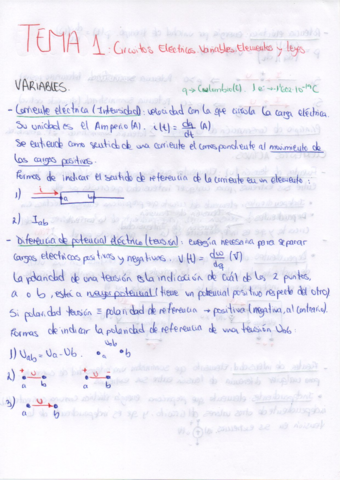 TEMA 1. Circuitos Electricos. Variables, Elementos y leyes.
VARIABLES. q → Coulombio(C) 1e⁻ → 1'602·10⁻¹⁹C
- Corriente eléctrica (Intensidad): velocidad con la que circula la carga eléctrica.
Su unidad es el Amperio (A). i(t) = dq/dt (A)
Se entiende como sentido de una corriente el correspondiente al movimiento de
las cargas positivas.
Formas de indicar el sentido de referencia de la corriente en un elemento:
1) i a b
2) Iab
- Diferencia de potencial eléctrico (tensión): energía necesaria para separar
cargas electricas positivas y negativas. v(t) = dw/dq (V)
La polaridad de una tensión es la indicación de cuál de los 2 puntos,
a o b, está a mayor potencial (tiene un potencial positivo respecto del otro)
Si polaridad tensión ≡ polaridad de referencia → positiva (negativa, al contrario).
Formas de indicar la polaridad de referencia de una tensión Uab:
1) Uab = Ua - Ub. a Uab b
2) + U - a b + U - a b
3) U a b